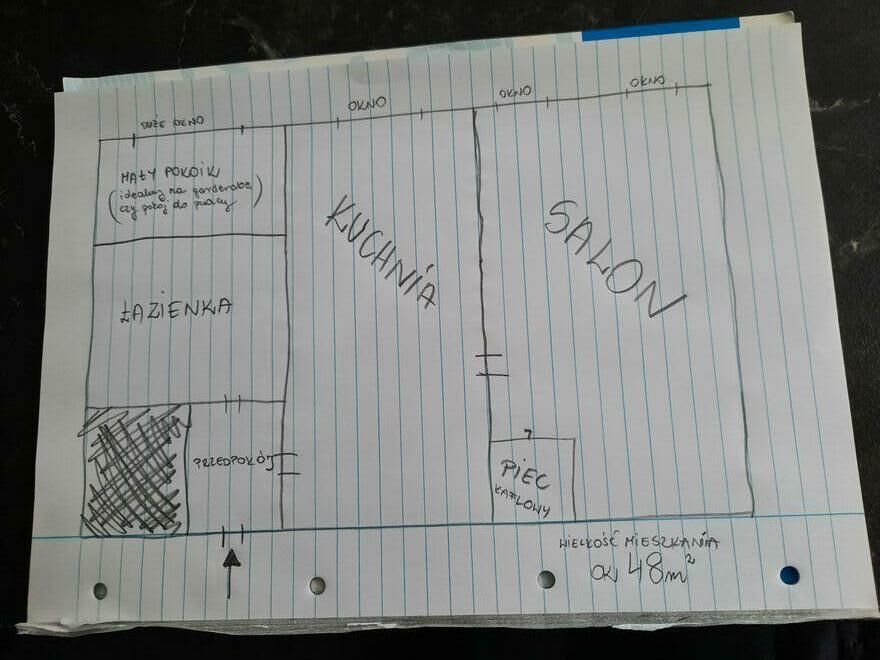 DUŻE OKNO
OKNO
OKNO
OKNO
MAŁY POKOIK
(idealny na garderobę
czy pokój do pracy)
KUCHNIA
SALON
ŁAZIENKA
PRZEDPOKÓJ
PIEC
KAFLOWY
WIELKOŚĆ MIESZKANIA
OK 48m²